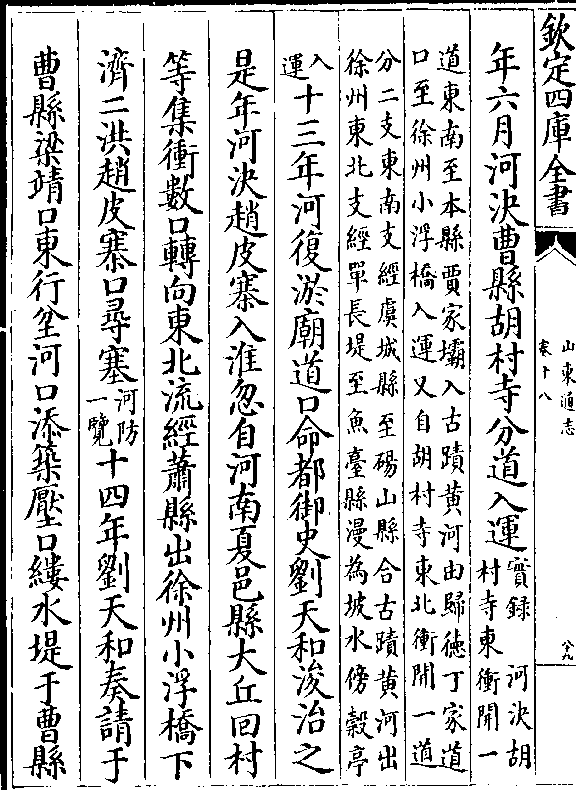 欽定四庫全書
山東通志
卷十八
六九
年六月河決曹縣胡村寺分道入運實錄 河決胡
村寺東衝開一
道東南至本縣賈家壩入古蹟黃河由歸德丁家道
口至徐州小浮橋入運又自胡村寺東北衝開一道
分二支東南支經虞城縣至碭山縣合古蹟黃河出
徐州東北支經單長堤至魚臺縣漫為坡水傍穀亭
入
運十三年河復淤廟道口命都御史劉天和浚治之
是年河決趙皮寨入淮忽自河南夏邑縣大丘回村
等集衝數口轉向東北流經蕭縣出徐州小浮橋下
濟二洪趙皮寨口尋塞河防
一覽十四年劉天和奏請于
曹縣梁靖口東行坌河口添築壓口縷水堤于曹縣